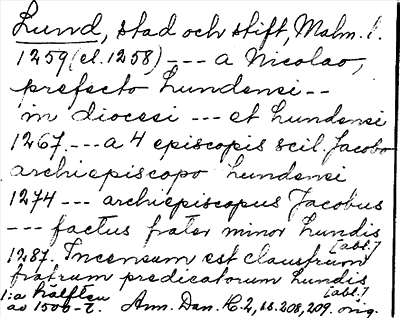 Lund, stad och stift, Malm. l.
1259 (el. 1258) --- a Nicolao,
prefecto Lundensi --
in diocesi --- et Lundensi
1267. --- a 4 episcopis scil. Jacobo
archiepiscopo Lundensi
1274 --- archiepiscopus Jacobus
--- factus frater minor Lundis
[abl.]
1287. Incensum est claustrum
fratrum predicatorum Lundis
[abl.]
1:a hälften
av 1500-t. Ann. Dan. K. 2, ss. 208, 209. orig.